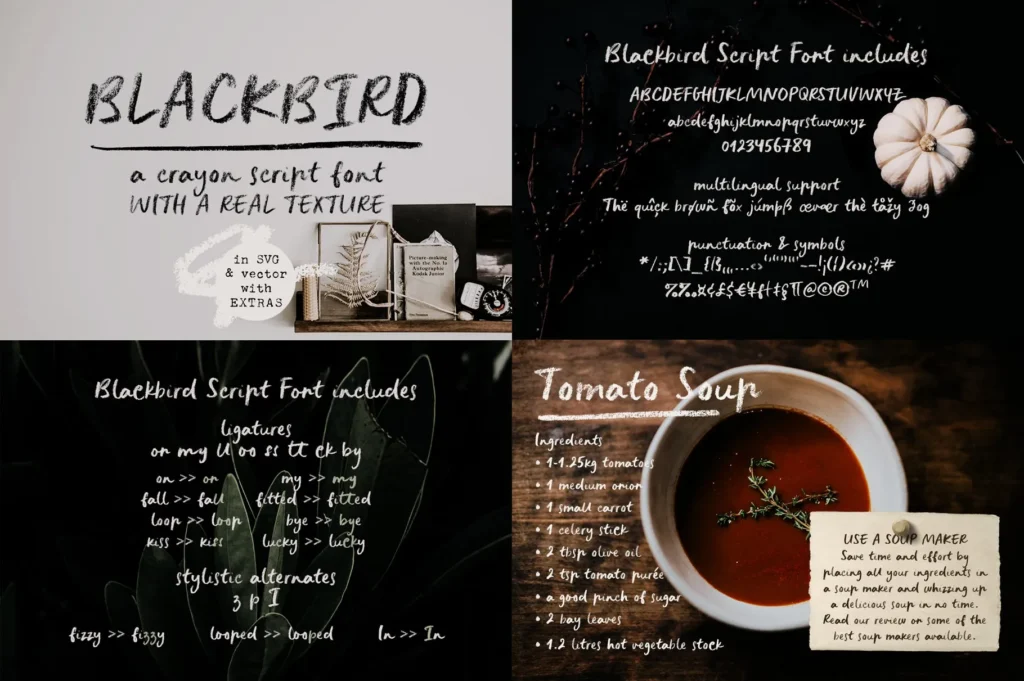 BLACKBIRD
a crayon script font
WITH A REAL TEXTURE
in SVG
& vector
with
EXTRAS
Picture-making
with the No. 1a
Autographic
Kodak Junior
Blackbird Script Font includes
ABCDEFGHIJKLMNOPQRSTUVWXYZ
abcdefghijklmnopqrstuvwxyz
0123456789
multilingual support
Thë quîçk brøwñ fõx júmpß œvær thè tåžy
punctuation & symbols
Blackbird Script Font includes
ligatures
on my ll oo ss tt ck by
on >> on my >> my
fall >> fall fitted >> fitted
loop >> loop bye >> bye
kiss >> kiss lucky >> lucky
stylistic alternates
z p I
fizzy >> fizzy looped >> looped In >> In
Tomato Soup
Ingredients
• 1-1.25kg tomatoes
• 1 medium onion
• 1 small carrot
• 1 celery stick
• 2 tbsp olive oil
• 2 tsp tomato purée
• a good pinch of sugar
• 2 bay leaves
• 1.2 litres hot vegetable stock
USE A SOUP MAKER
Save time and effort by
placing all your ingredients in
a soup maker and whizzing up
a delicious soup in no time.
Read our review on some of the
best soup makers available.